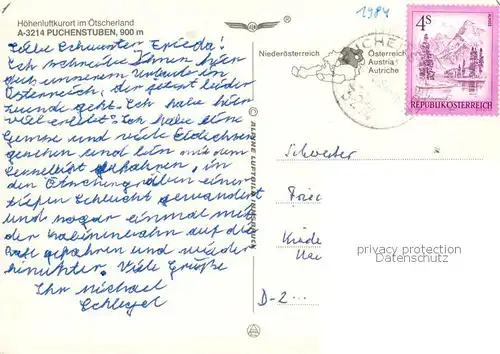 Höhenluftkurort im Ötscherland
A-3214 PUCHENSTUBEN, 900 m
1984
4 S
REPUBLIK ÖSTERREICH
Niederösterreich
Österreich
Austria
Autriche
Liebe Schwester Frieda!
Ich schreibe Ihnen hier
aus unserem Urlaub in
Österreich, der jetzt leider
zuende geht. Ich habe hier
viel erlebt. Ich habe eine
Gemse und viele Eidechsen
gesehen und bin mit dem
Sessellift gefahren, in
den Ötschergräben einer
tiefen Schlucht gewandert
und sogar einmal mit
der Kabinenbahn auf die
gefahren und wieder
hinunter. Viele Grüße
Ihr Michael
Schlegel
© ALPINE LUFTBILD, INNSBRUCK
Schwester
Frie
D-2...
privacy protection
AnsichtskartenCenter